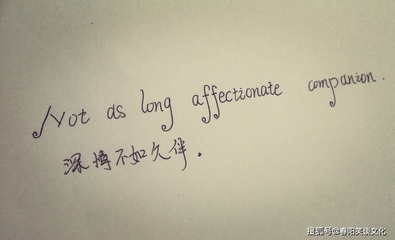 Not as long affectionate companion.
深情不如久伴.
搜狐号@春阳笑谈文化